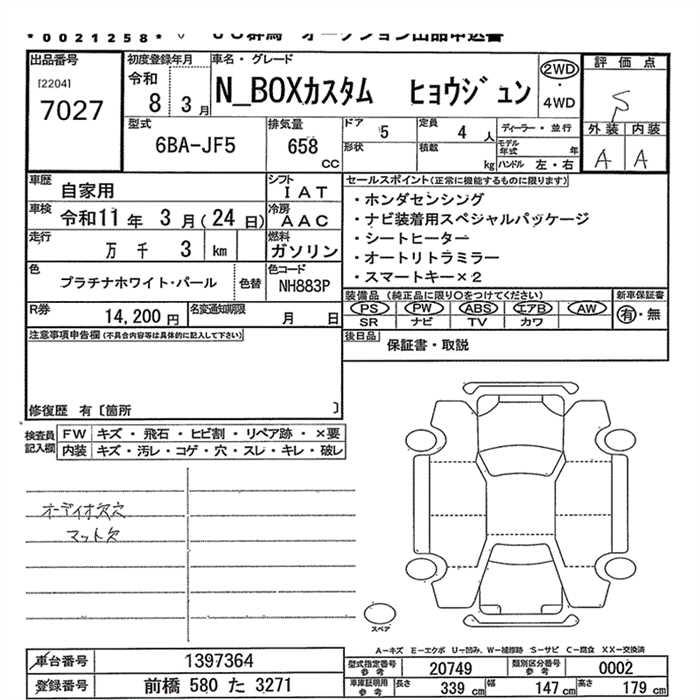 *0021258*
JU群馬 オークション出品申込書
出品番号
[2204]
7027
初度登録年月
令和
8 3月
車名・グレード
N_BOXカスタム ヒョウジュン
2WD
・
4WD
評価点
S
外装 内装
A A
型式
6BA-JF5
排気量
658
CC
ドア 5
定員 4 人
形状
積載 kg
ディーラー・並行
モデル年式 年
ハンドル 左・右
車歴 自家用
シフト IAT
車検 令和11年 3月(24日)
冷房 AAC
走行 万 千 3 km
燃料 ガソリン
色 プラチナホワイト・パール
色替
色コード NH883P
R券 14,200円
名変通知期限 月 日
セールスポイント(正常に機能するものに限ります)
・ホンダセンシング
・ナビ装着用スペシャルパッケージ
・シートヒーター
・オートリトラミラー
・スマートキー×2
装備品(純正品に限り○をつけてください)
PS PW ABS エアB AW
SR ナビ TV カワ
新車保証書
有・無
後日品 保証書・取説
注意事項申告欄(不具合内容等は具体的に記入して下さい)
修復歴 有〔箇所 〕
検査員記入欄
FW キズ・飛石・ヒビ割・リペア跡・×要
内装 キズ・汚レ・コゲ・穴・スレ・キレ・破レ
オーディオ欠穴
マット欠
スペア
A-キズ E-エクボ U-凹み、W-補修跡 S-サビ C-腐食 XX-交換済
車台番号 1397364
登録番号 前橋 580 た 3271
型式指定番号参考 20749
類別区分番号参考 0002
車庫証明用参考
長さ 339 cm
幅 147 cm
高さ 179 cm